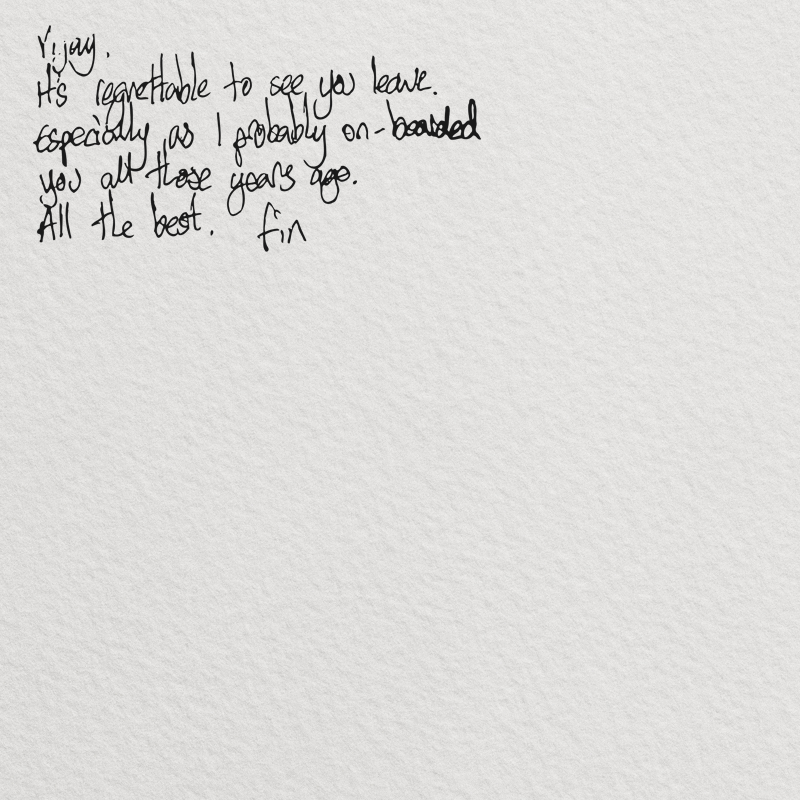 Vijay.
It's regrettable to see you leave.
Especially as I probably on-boarded
you all those years ago.
All the best. fin